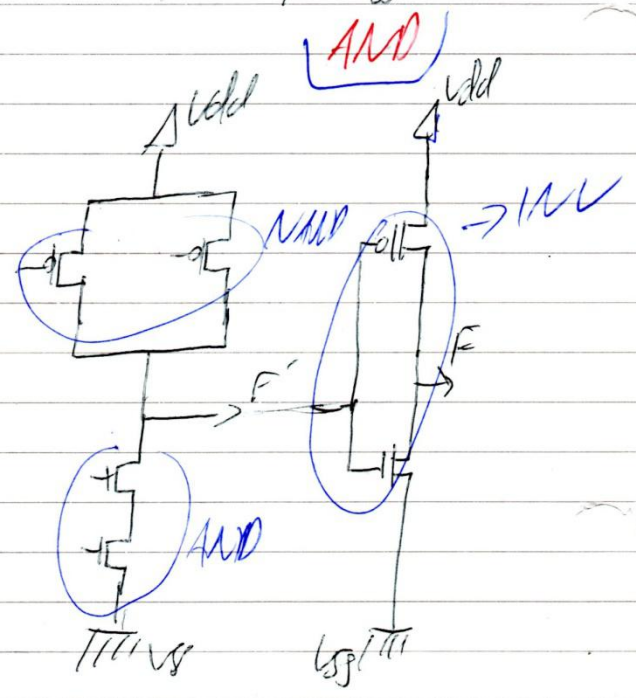 AND
Vdd
Vdd
NAND
→INV
F
F'
AND
Vss